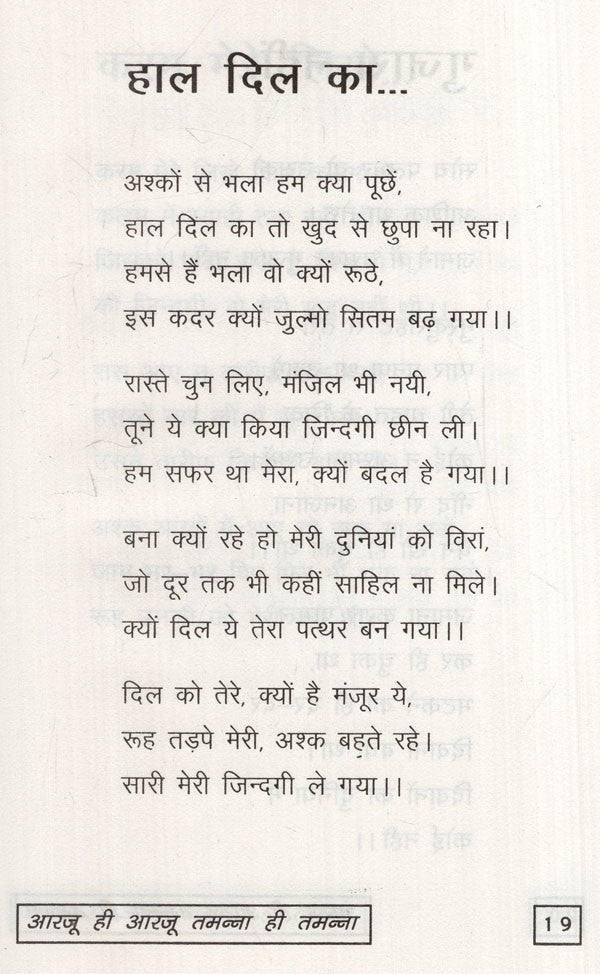 हाल दिल का...
अश्कों से भला हम क्या पूछें,
हाल दिल का तो खुद से छुपा ना रहा।
हमसे हैं भला वो क्यों रूठे,
इस कदर क्यों जुल्मो सितम बढ़ गया।।
रास्ते चुन लिए, मंजिल भी नयी,
तूने ये क्या किया जिन्दगी छीन ली।
हम सफर था मेरा, क्यों बदल है गया।।
बना क्यों रहे हो मेरी दुनियां को विरां,
जो दूर तक भी कहीं साहिल ना मिले।
क्यों दिल ये तेरा पत्थर बन गया।।
दिल को तेरे, क्यों है मंजूर ये,
रूह तड़पे मेरी, अश्क बहते रहे।
सारी मेरी जिन्दगी ले गया।।
आरजू ही आरजू तमन्ना ही तमन्ना
19